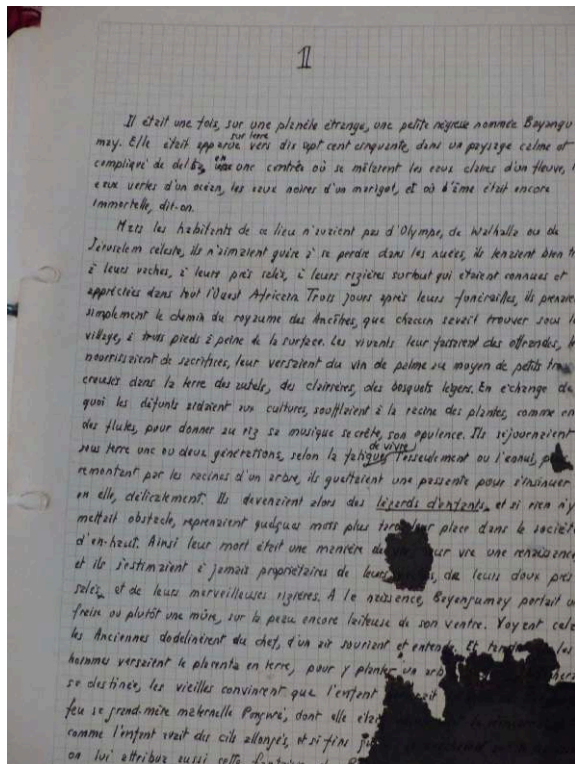 1
Il était une fois, sur une planète étrange, une petite négresse nommée Bayangu
sur terre
may. Elle était apparue vers dix sept cent cinquante, dans un paysage calme et
en
compliqué de delta, une contrée où se mêlaient les eaux claires d'un fleuve,
eaux vertes d'un océan, les eaux noires d'un marigot, et où l'âme était encore
immortelle, dit-on.
Mais les habitants de ce lieu n'avaient pas d'Olympe, de Walhalla ou de
Jérusalem céleste, ils n'aimaient guère à se perdre dans les nuées, ils tenaient bien
à leurs vaches, à leurs prés salés, à leurs rizières surtout qui étaient connues et
appréciées dans tout l'Ouest Africain. Trois jours après leurs funérailles, ils
simplement le chemin du royaume des Ancêtres, que chacun savait trouver sous
village, à trois pieds à peine de la surface. Les vivants leur faisaient des offrandes,
nourrissaient de sacrifices, leur versaient du vin de palme au moyen de petits
creusés dans la terre des autels, des clairières, des bosquets légers. En échange de
quoi les défunts aidaient aux cultures, soufflaient à la racine des plantes, comme en
des flutes, pour donner au riz sa musique secrète, son opulence. Ils séjournaient
de vivre
sous terre une ou deux générations, selon la fatigue, l'esseulement ou l'ennui,
remontant par les racines d'un arbre, ils guettaient une passante pour s'insinuer
en elle, délicatement. Ils devenaient alors des lézards d'enfants, et si rien n'y
mettait obstacle, reprenaient quelques mois plus leur place dans la société
d'en-haut. Ainsi leur mort était une manière de leur vie une renaissance
et ils s'estimaient à jamais propriétaires de leurs de leurs doux prés
salés, et de leurs merveilleuses rizières. A la naissance, Bayangumay portait
fraise ou plutôt une mûre, sur la peau encore laiteuse de son ventre. Voyant
les Anciennes dodelinèrent du chef, d'un air souriant et entendu. Et les
hommes versaient le placenta en terre, pour y planter un
sa destinée, les vieilles convinrent que l'enfant
feu sa grand-mère maternelle Pongwé, dont elle
comme l'enfant avait des cils allongés, et si fins
on lui attribua aussi cette